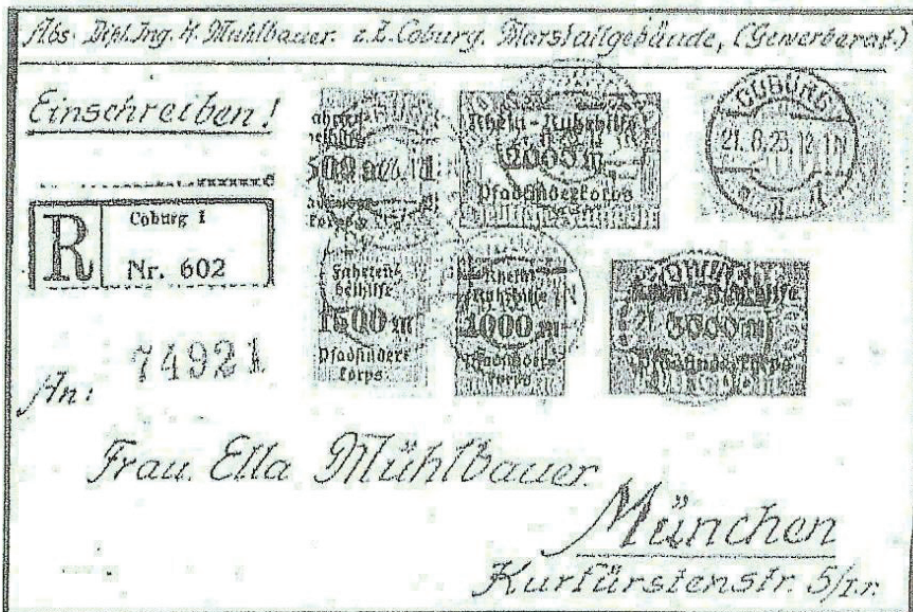 Abs. Dipl. Ing. H. Mühlbauer z.Z. Coburg. Marstallgebäude, (Gewerberat.)
Einschreiben!
R
Coburg 1
Nr. 602
74921
Fahrten-
beihilfe
500 m
korps
Rhein-Ruhrhilfe
2000 m
Pfadfinderkorps
COBURG
21. 8. 23. 12
Fahrten-
beihilfe
1500 m
Pfadfinder-
korps
Rhein-
Ruhrhilfe
1000 m
Pfadfinder-
korps
Rhein-Ruhrhilfe
3000 m
Pfadfinderkorps
An:
Frau Ella Mühlbauer.
München
Kurfürstenstr. 5/I.r.